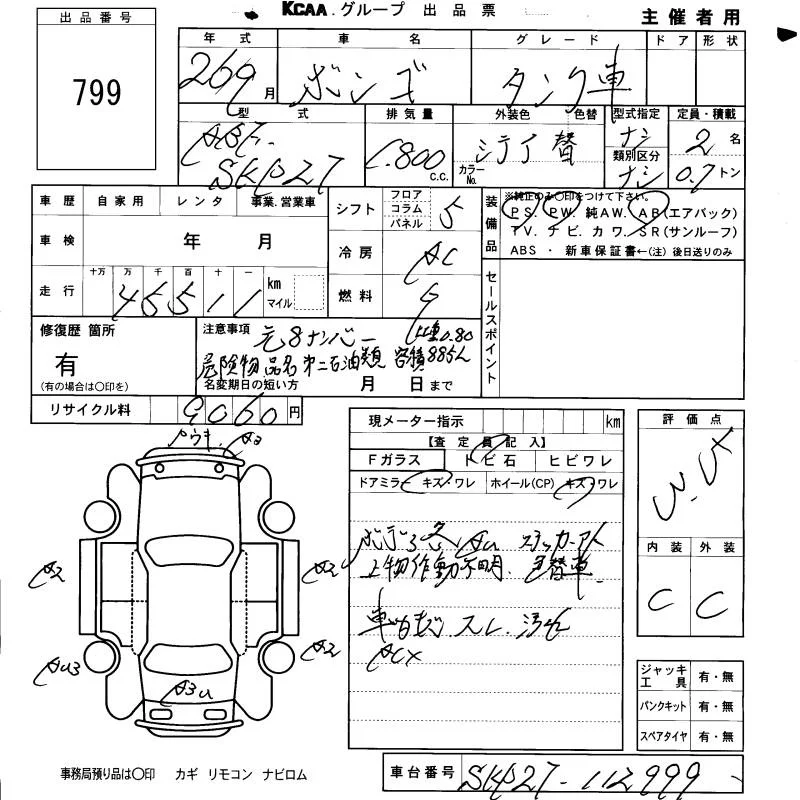 KCAA.グループ 出品票
主催者用
出品番号
799
年式 車名 グレード ドア 形状
269月 ボンゴ タンク車
型式 排気量 外装色 色替 型式指定 定員・積載
ABF-
SKP27
1.800 c.c.
シロイ 替
カラーNo.
ナシ
類別区分
ナシ
2名
0.7トン
車歴 自家用 レンタ 事業.営業車
車検 年 月
走行 十万 万 千 百 十 一
45511 km マイル
シフト フロア コラム パネル 5
冷房 AC
燃料 G
装備品
※純正のみ〇印をつけて下さい。
PS. PW. 純AW. AB(エアバック)
TV. ナビ. カワ. SR(サンルーフ)
ABS ・ 新車保証書←(注) 後日送りのみ
セールスポイント
修復歴 箇所
有
(有の場合は〇印を)
注意事項
元8ナンバー 比重0.80
危険物 品名 第二石油類 容積885L
名変期日の短い方 月 日まで
リサイクル料 9060円
現メーター指示 km
【査定員記入】
Fガラス トビ石 ヒビワレ
ドアミラー キズ・ワレ ホイール(CP) キズ・ワレ
AU ステッカーアト
上物作動不明. 色替車
スレ. 汚れ
ACX
評価点
内装 外装
C C
A2
A2
A2
AU3
A3U
ジャッキ工具 有・無
パンクキット 有・無
スペアタイヤ 有・無
事務局預り品は〇印 カギ リモコン ナビロム
車台番号 SKP27-112999